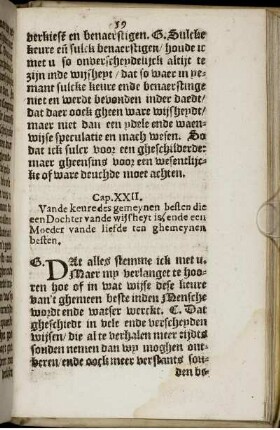 39
verkiesē en benaerstigen. G. Sulcke
keure eñ sulck benaerstigen / houde ic
met u so onverscheydelijck altijt te
zijn inde wijsheyt / dat so waer in ye-
mant sulcke keure ende benaerstinge
niet en werdt bevonden inder daedt /
dat daer oock gheen ware wijsheydt /
maer niet dan een ydele ende waen-
wijse speculatie en mach wesen. So
dat ick sulcx voor een gheschilderde:
maer gheensins voor een wesentlijc-
ke of ware deuchde moet achten.
Cap. XXII.
Vande keure des gemeynen besten die
een Dochter vande wijsheyt is, ende een
Moeder vande liefde ten ghemeynen
besten.
G. DAt alles stemme ick met u.
Maer my verlanget te hoo-
ren hoe of in wat wijse dese keure
van't ghemeen beste inden Mensche
wordt ende watser werckt. C. Dat
gheschiedt in vele ende verscheyden
wijsen / die al te verhalen meer tijdts
souden nemen dan wy moghen ont-
beren / ende oock meer verstants sou-
den be-